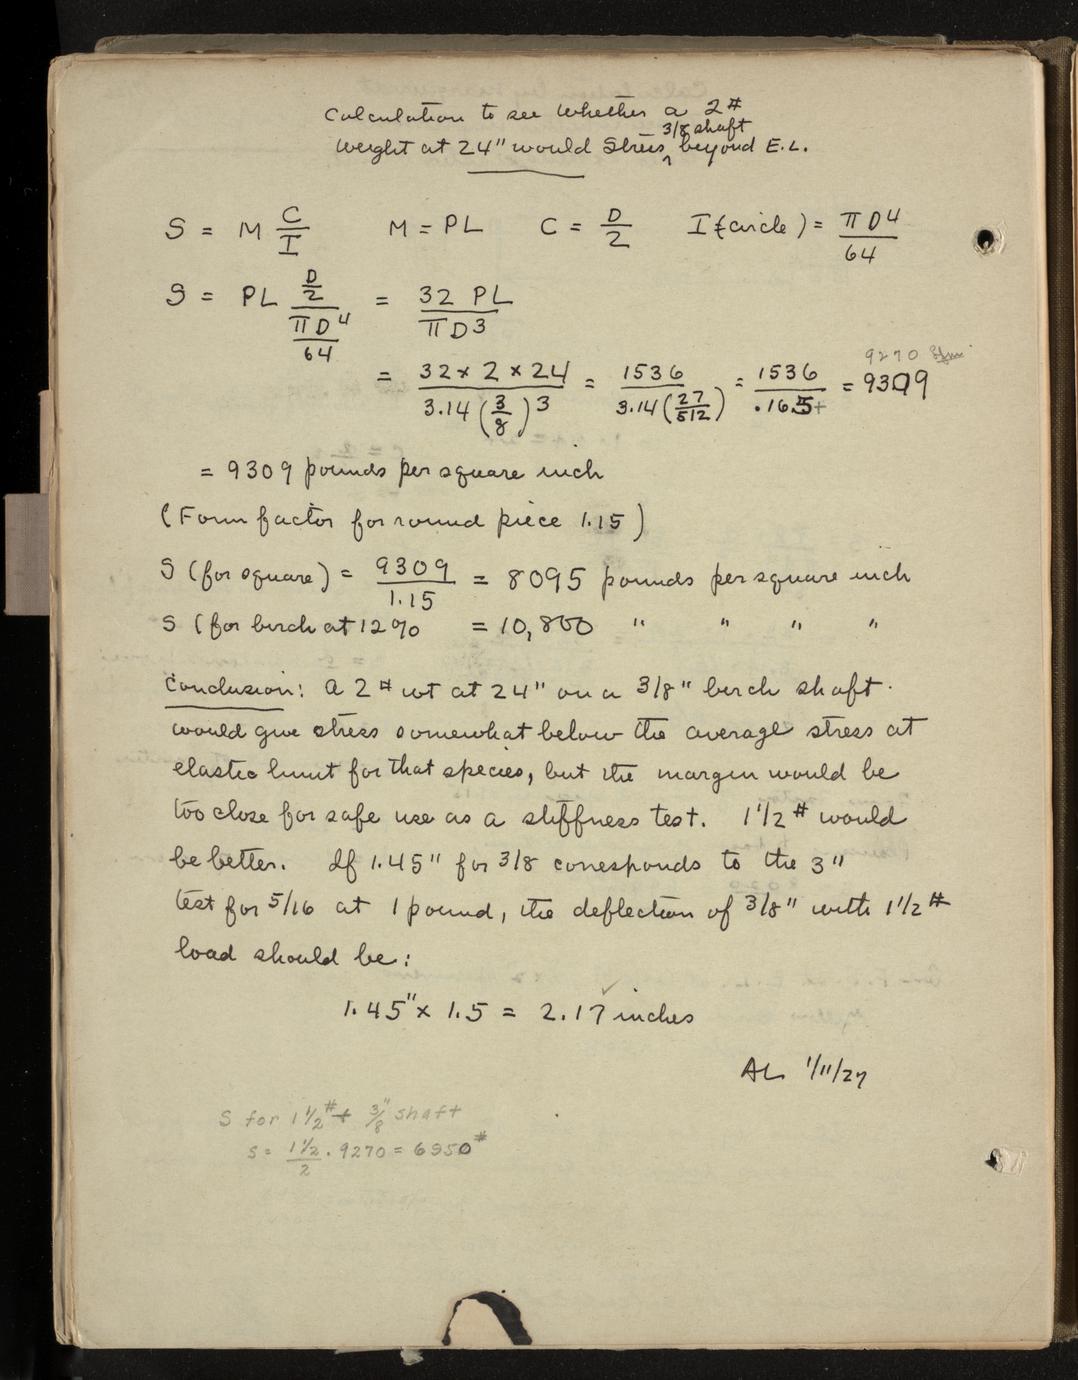 Calculation to see whether a 2#
3/8 shaft
weight at 24" would stress ‸ beyond E.L.
S = M C/I   M = PL   C = D/2   I (circle) = πD⁴/64
S = PL (D/2)/(πD⁴/64) = 32 PL/πD³
9270
= 32 x 2 x 24/3.14 (3/8)³ = 1536/3.14 (27/512) = 1536/.165+ = 9309
= 9309 pounds per square inch
(Form factor for round piece 1.15)
S (for square) = 9309/1.15 = 8095 pounds per square inch
S (for birch at 12% = 10,800 " " " "
Conclusion: A 2# wt at 24" on a 3/8" birch shaft.
would give stress somewhat below the average stress at
elastic limit for that species, but the margin would be
too close for safe use as a stiffness test. 1 1/2 # would
be better. If 1.45" for 3/8 corresponds to the 3"
test for 5/16 at 1 pound, the deflection of 3/8" with 1 1/2 #
load should be:
1.45" x 1.5 = 2.17 inches
AL 1/11/27
S for 1 1/2# + 3/8" shaft
S = 1 1/2/2 . 9270 = 6950#